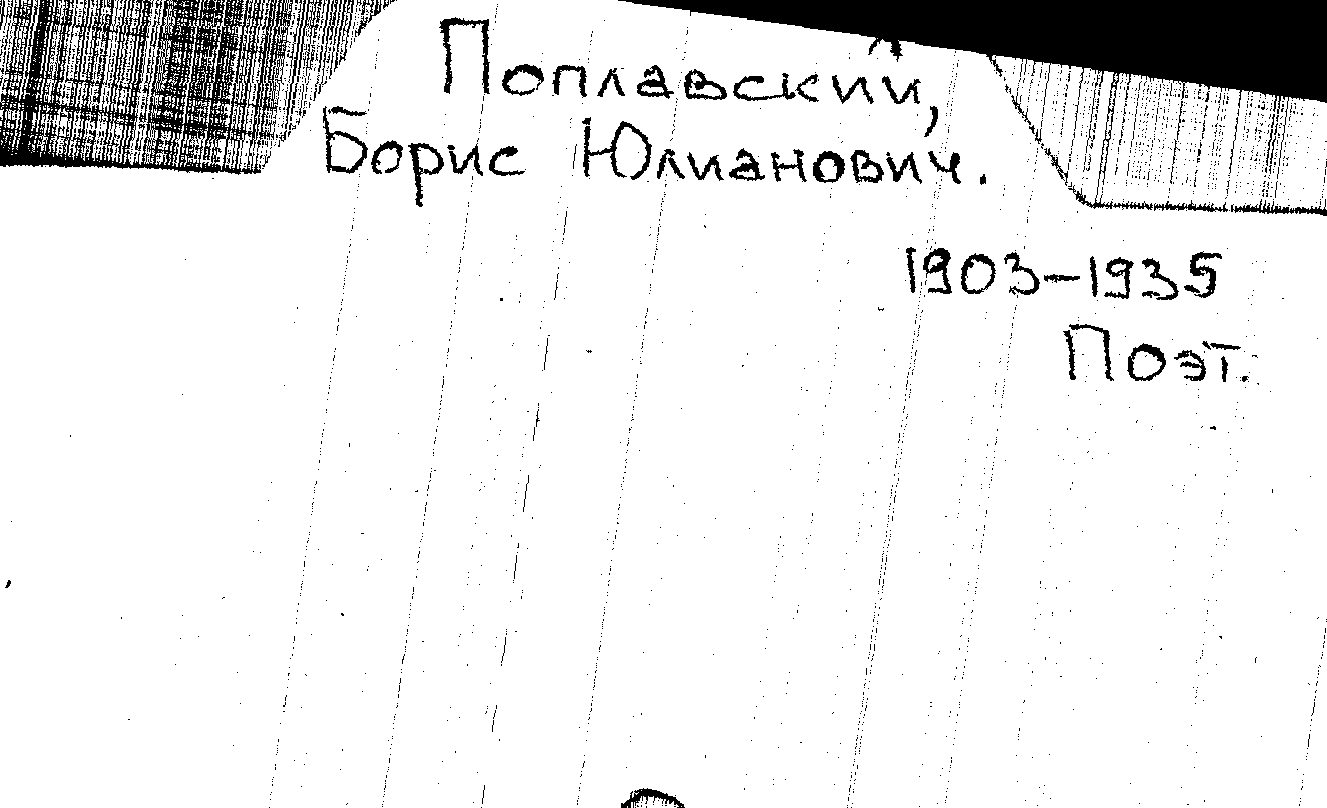 Поплавский,
Борис Юлианович.
1903-1935
Поэт.